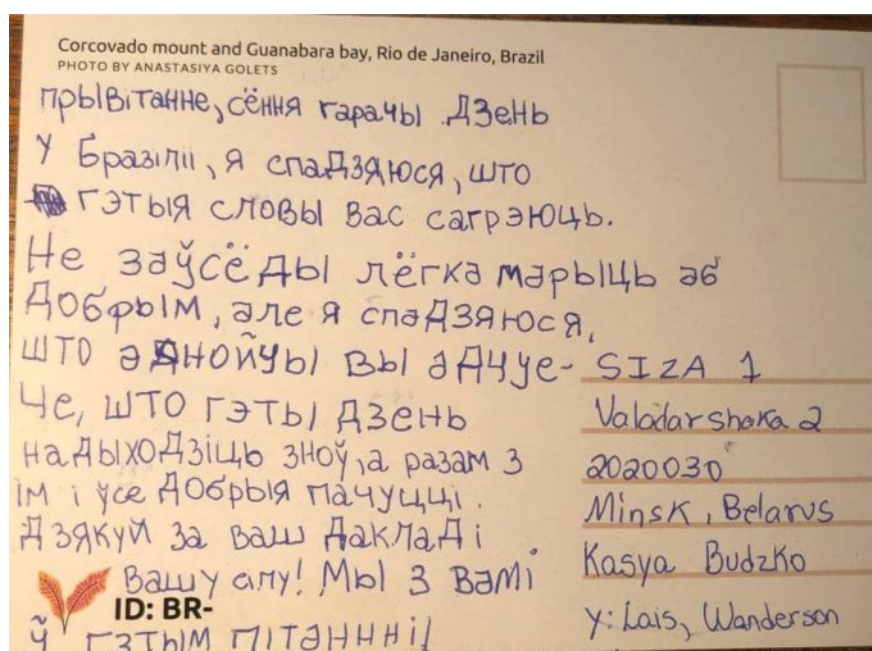 Corcovado mount and Guanabara bay, Rio de Janeiro, Brazil
PHOTO BY ANASTASIYA GOLETS
прывітанне, сёння гарачы дзень
у Бразіліі, я спадзяюся, што
гэтыя словы вас сагрэюць.
Не заўсёды лёгка марыць аб
добрым, але я спадзяюся,
што аднойчы вы адчуе-
че, што гэты дзень
надыходзіць зноў, а разам з
ім і ўсе добрыя пачуцці.
Дзякуй за ваш даклад і
вашу сілу! Мы з вамі
ў гэтым пітаннні!
ID: BR-
SIZA 1
Valadarshaka 2
2020030
Minsk, Belarus
Kasya Budzko
y: Lais, Wanderson